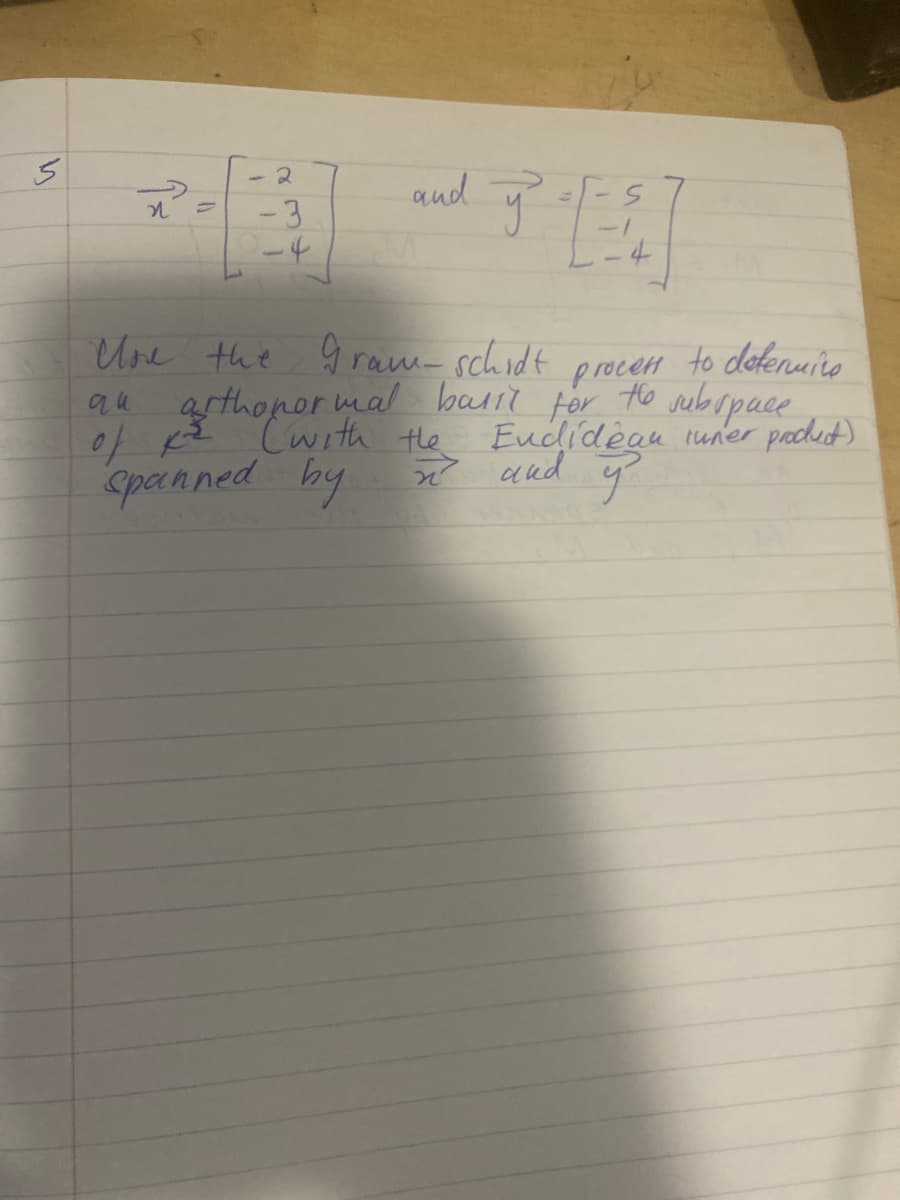 5 x⃗ = [-2 and y⃗ = [-5
-3 -1
-4] -4]
Use the Gram-schidt process to determine
an orthonormal basis for the subspace
of R³ (with the Euclidean inner product)
spanned by x⃗ and y⃗